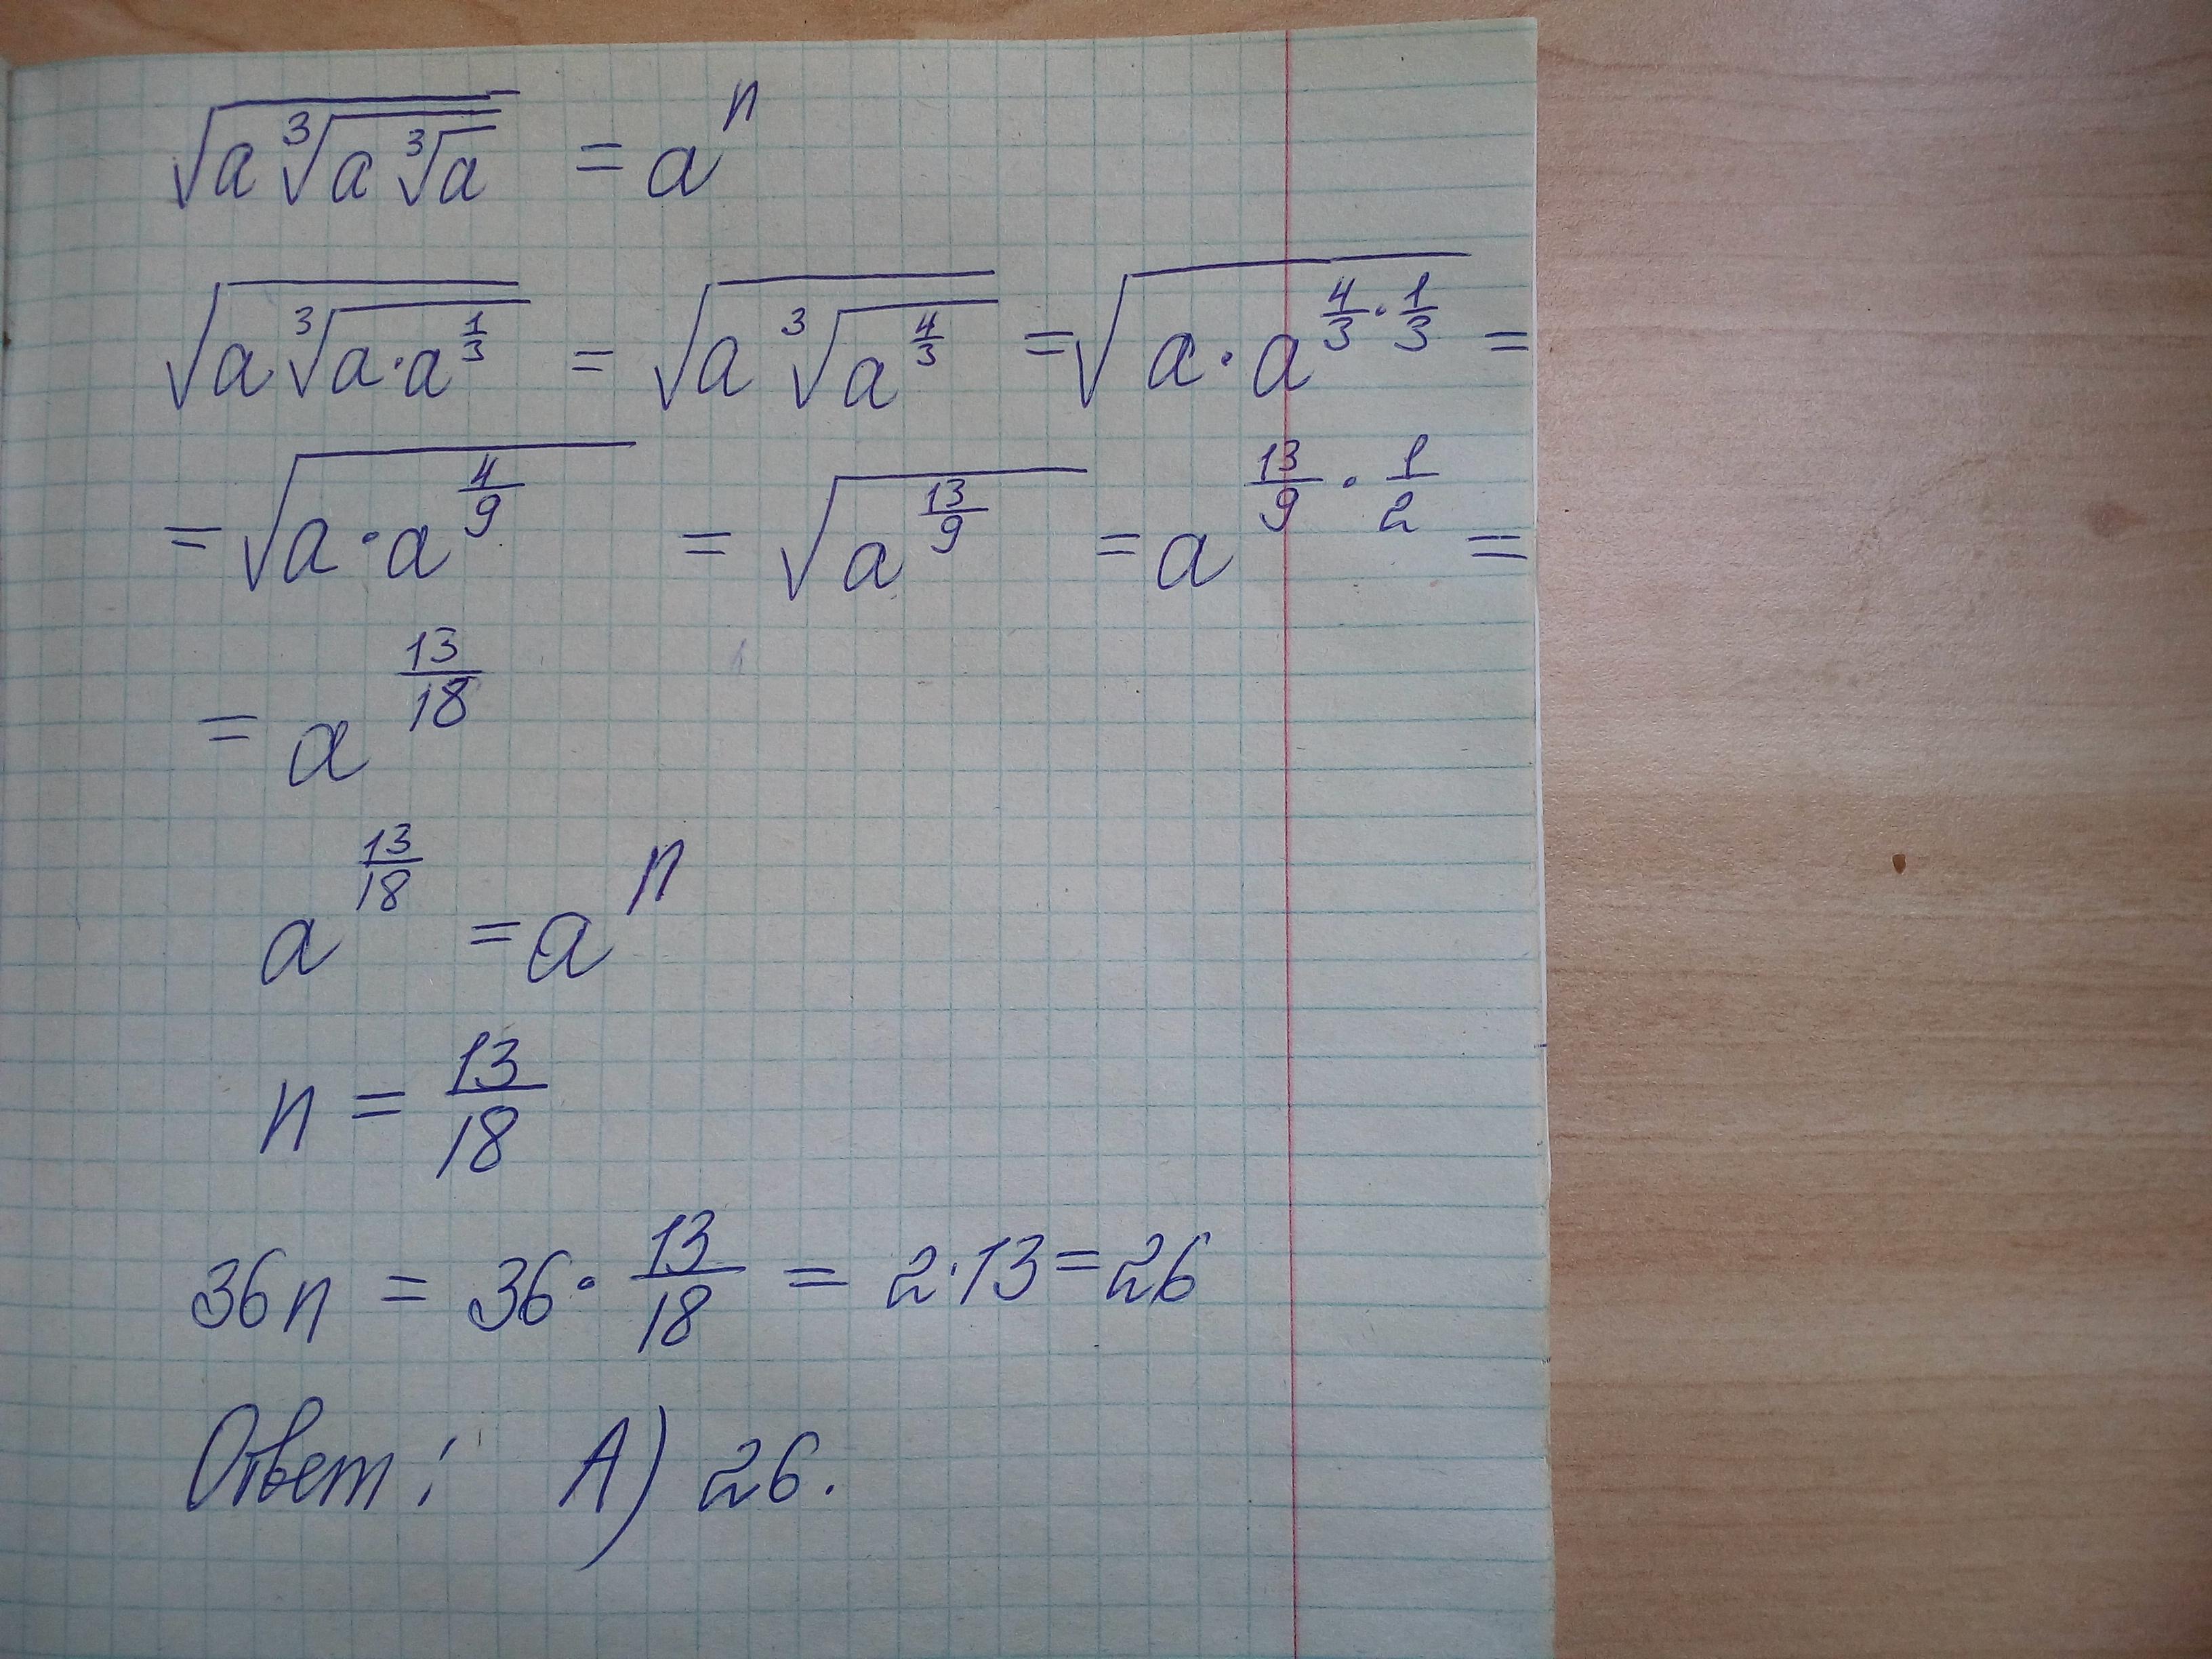 √(a ∛(a ∛a)) = aⁿ
√(a ∛(a · a^(1/3))) = √(a ∛(a^(4/3))) = √(a · a^(4/3 · 1/3)) =
= √(a · a^(4/9)) = √(a^(13/9)) = a^(13/9 · 1/2) =
= a^(13/18)
a^(13/18) = aⁿ
n = 13/18
36n = 36 · 13/18 = 2 · 13 = 26
Ответ: А) 26.